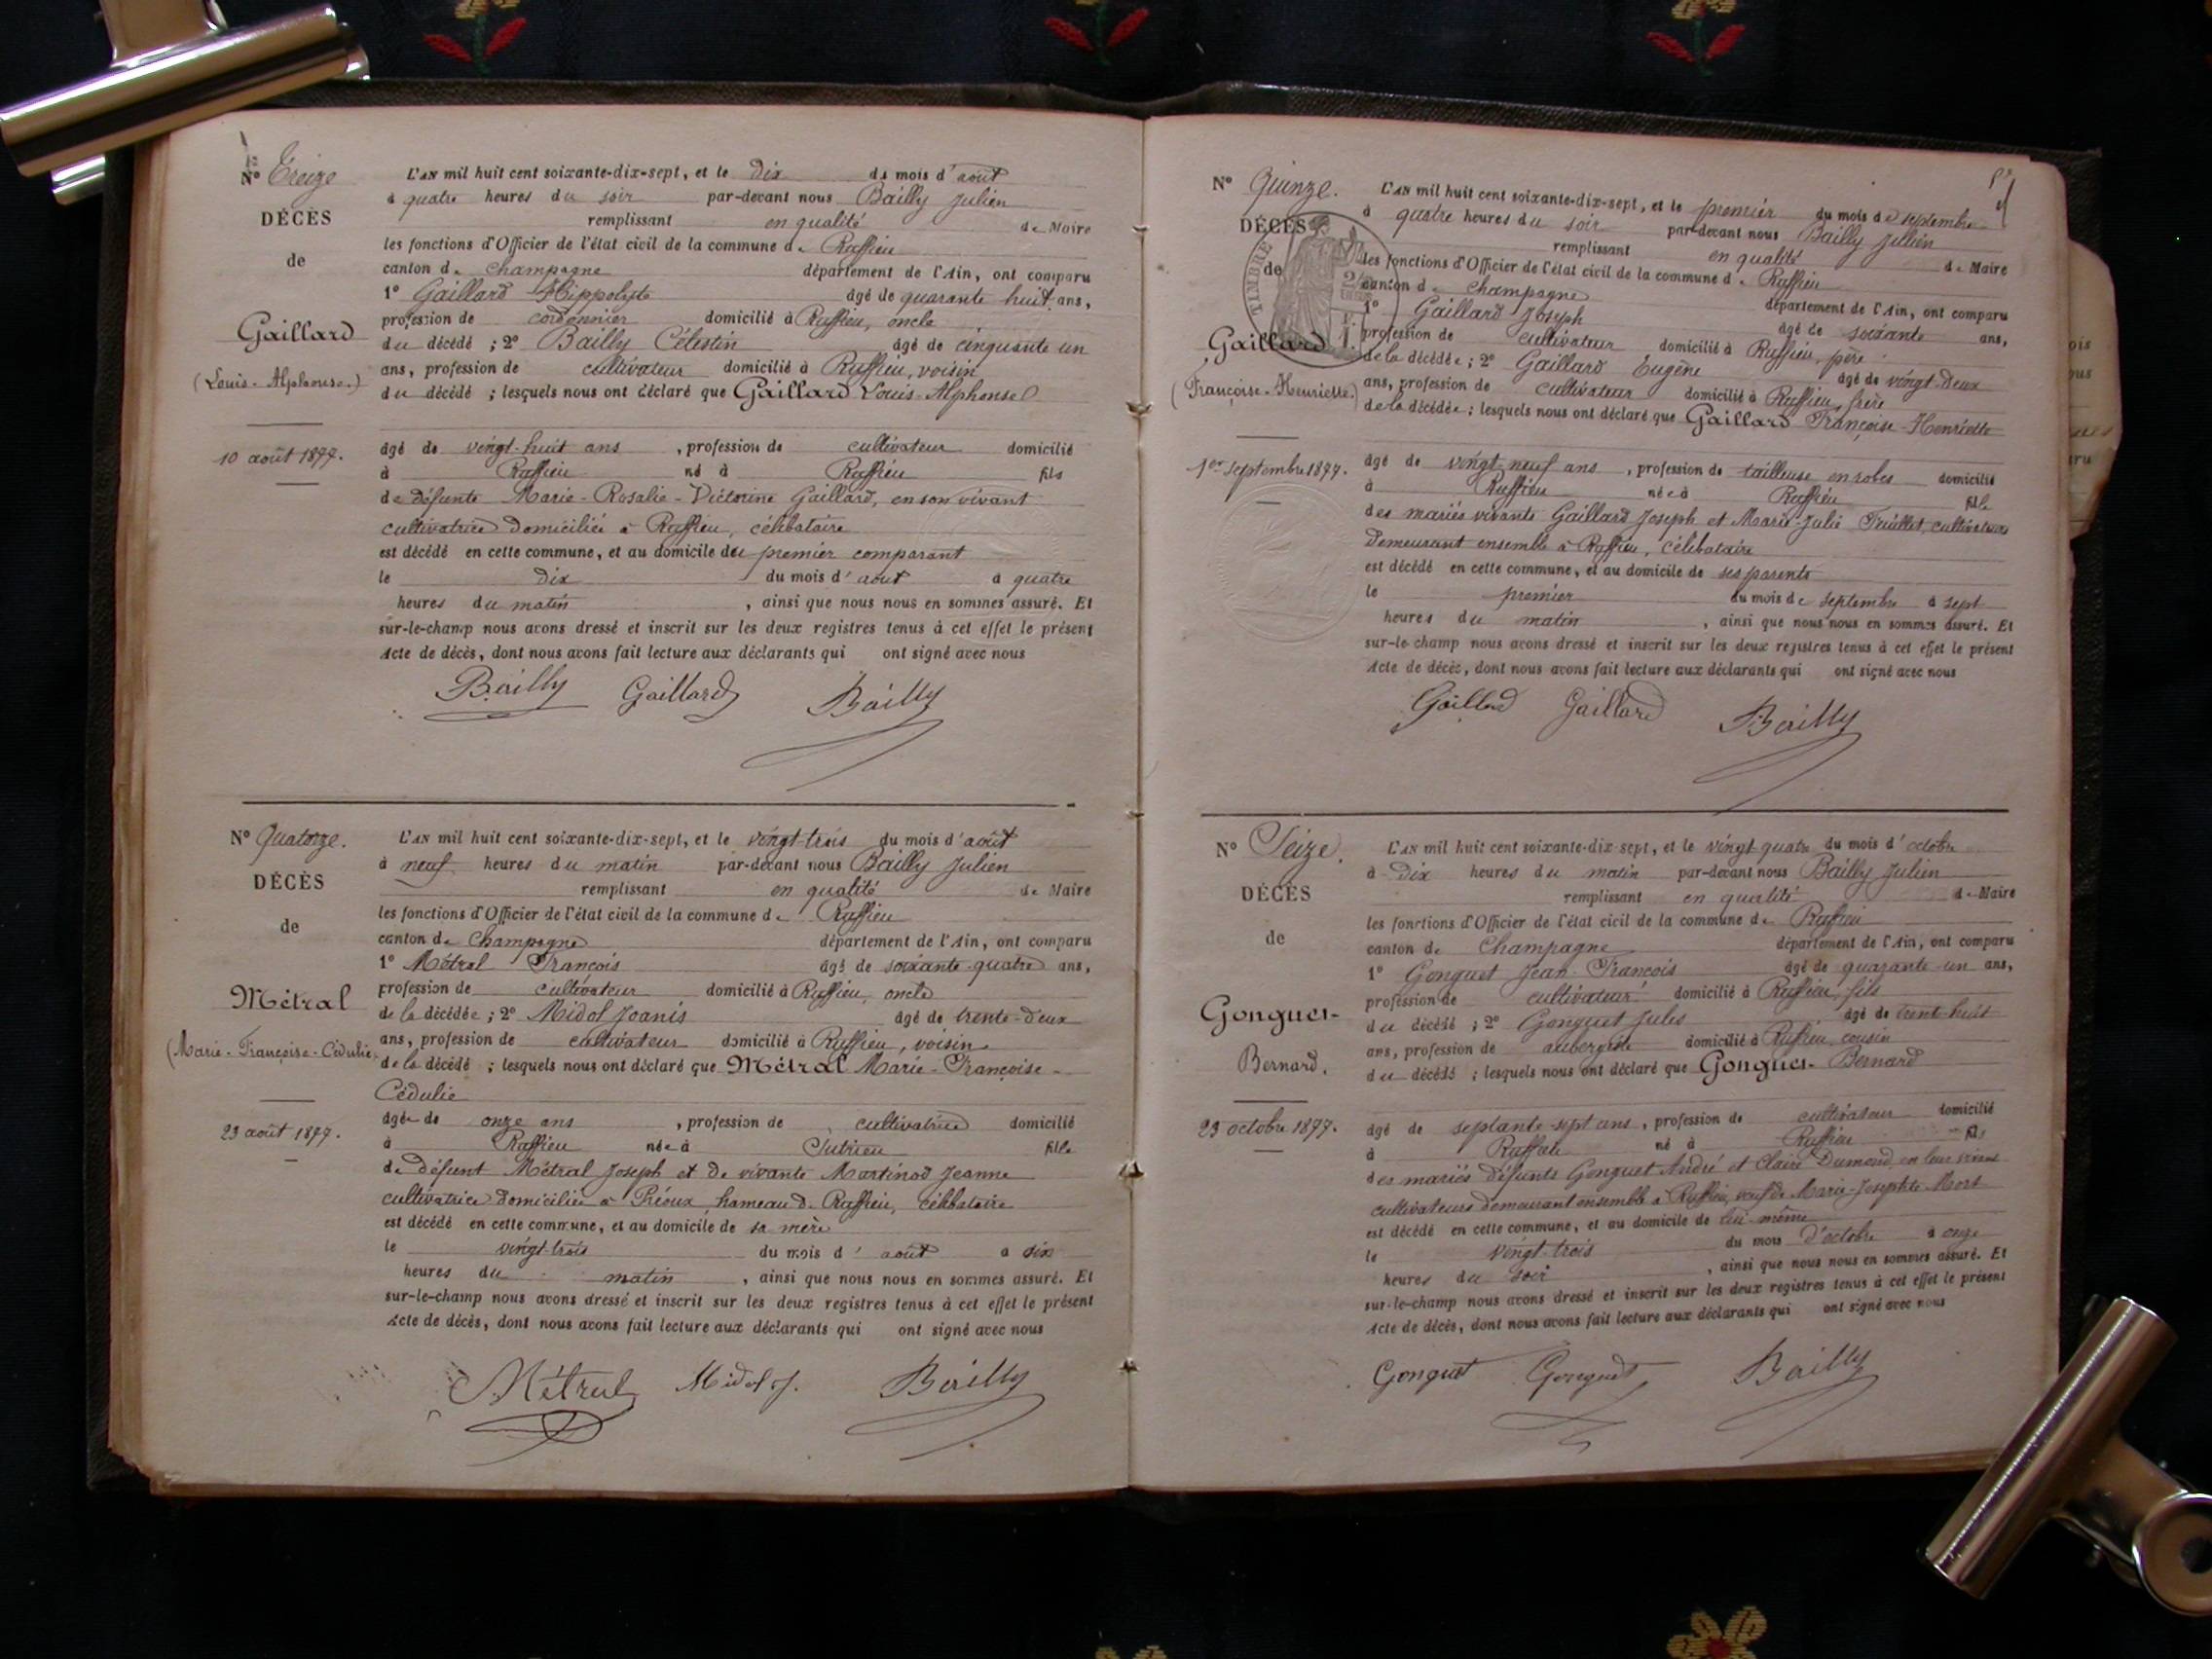 No Treize
DÉCÈS
de
Gaillard
(Louis-Alphonse.)
10 août 1877.
L'AN mil huit cent soixante-dix-sept, et le dix du mois d'août
à quatre heures du soir par-devant nous Bailly Julien
remplissant en qualité de Maire
les fonctions d'Officier de l'état civil de la commune de Ruffieu
canton de Champagne département de l'Ain, ont comparu
1° Gaillard Hippolyte âgé de quarante huit ans,
profession de cordonnier domicilié à Ruffieu, oncle
du décédé ; 2° Bailly Célestin âgé de cinquante un
ans, profession de cultivateur domicilié à Ruffieu, voisin
du décédé ; lesquels nous ont déclaré que Gaillard Louis-Alphonse
âgé de vingt-huit ans , profession de cultivateur domicilié
à Ruffieu né à Ruffieu fils
de défunte Marie-Rosalie-Victorine Gaillard, en son vivant
cultivatrice domiciliée à Ruffieu, célibataire
est décédé en cette commune, et au domicile du premier comparant
le dix du mois d'août à quatre
heures du matin , ainsi que nous nous en sommes assuré. Et
sur-le-champ nous avons dressé et inscrit sur les deux registres tenus à cet effet le présent
Acte de décès, dont nous avons fait lecture aux déclarants qui ont signé avec nous
Bailly Gaillard Bailly
No Quatorze.
DÉCÈS
de
Métral
(Marie-Françoise-Cédulie.
23 août 1877.
L'AN mil huit cent soixante-dix-sept, et le vingt-trois du mois d'août
à neuf heures du matin par-devant nous Bailly Julien
remplissant en qualité de Maire
les fonctions d'Officier de l'état civil de la commune de Ruffieu
canton de Champagne département de l'Ain, ont comparu
1° Métral François âgé de soixante-quatre ans,
profession de cultivateur domicilié à Ruffieu, oncle
de la décédée ; 2° Midol Joanis âgé de trente-deux
ans, profession de cultivateur domicilié à Ruffieu, voisin
de la décédé ; lesquels nous ont déclaré que Métral Marie-Françoise-
Cédulie
âgée de onze ans , profession de cultivatrice domicilié
à Ruffieu née à Chutrieu fille
de défunt Métral Joseph et de vivante Martinod Jeanne
cultivatrice domiciliée à Préoux, hameau de Ruffieu, célibataire
est décédé en cette commune, et au domicile de sa mère
le vingt-trois du mois d'août à six
heures du matin , ainsi que nous nous en sommes assuré. Et
sur-le-champ nous avons dressé et inscrit sur les deux registres tenus à cet effet le présent
Acte de décès, dont nous avons fait lecture aux déclarants qui ont signé avec nous
Métral Midol J. Bailly
No Quinze.
DÉCÈS
de
TIMBRE
Gaillard
(Françoise-Henriette.)
1er septembre 1877.
L'AN mil huit cent soixante-dix-sept, et le premier du mois de septembre
à quatre heures du soir par-devant nous Bailly Julien
remplissant en qualité de Maire
les fonctions d'Officier de l'état civil de la commune de Ruffieu
canton de Champagne département de l'Ain, ont comparu
1° Gaillard Joseph âgé de soixante ans,
profession de cultivateur domicilié à Ruffieu, père
de la décédée ; 2° Gaillard Eugène âgé de vingt-deux
ans, profession de cultivateur domicilié à Ruffieu, frère
de la décédée ; lesquels nous ont déclaré que Gaillard Françoise-Henriette
âgé de vingt-neuf ans , profession de tailleuse en robes domicilié
à Ruffieu née à Ruffieu fille
des mariés vivants Gaillard Joseph et Marie-Julie cultivateurs
demeurant ensemble à Ruffieu, célibataire
est décédé en cette commune, et au domicile de ses parents
le premier du mois de septembre à sept
heures du matin , ainsi que nous nous en sommes assuré. Et
sur-le-champ nous avons dressé et inscrit sur les deux registres tenus à cet effet le présent
Acte de décès, dont nous avons fait lecture aux déclarants qui ont signé avec nous
Gaillard Gaillard Bailly
No Seize.
DÉCÈS
de
Gonguet
Bernard.
23 octobre 1877.
L'AN mil huit cent soixante-dix-sept, et le vingt-quatre du mois d'octobre
à dix heures du matin par-devant nous Bailly Julien
remplissant en qualité de Maire
les fonctions d'Officier de l'état civil de la commune de Ruffieu
canton de Champagne département de l'Ain, ont comparu
1° Gonguet Jean François âgé de quarante un ans,
profession de cultivateur domicilié à Ruffieu, fils
du décédé ; 2° Gonguet Jules âgé de trent-huit
ans, profession de aubergiste domicilié à Ruffieu, cousin
du décédé ; lesquels nous ont déclaré que Gonguet Bernard
âgé de septante-sept ans , profession de cultivateur domicilié
à Ruffieu né à Ruffieu fils
des mariés défunts Gonguet André et Claire Dumond, en leur vivant
cultivateurs demeurant ensemble à Ruffieu, veuf de Marie-Josephte Mort
est décédé en cette commune, et au domicile de lui-même
le vingt-trois du mois d'octobre à onze
heures du soir , ainsi que nous nous en sommes assuré. Et
sur-le-champ nous avons dressé et inscrit sur les deux registres tenus à cet effet le présent
Acte de décès, dont nous avons fait lecture aux déclarants qui ont signé avec nous
Gonguet Gonguet Bailly